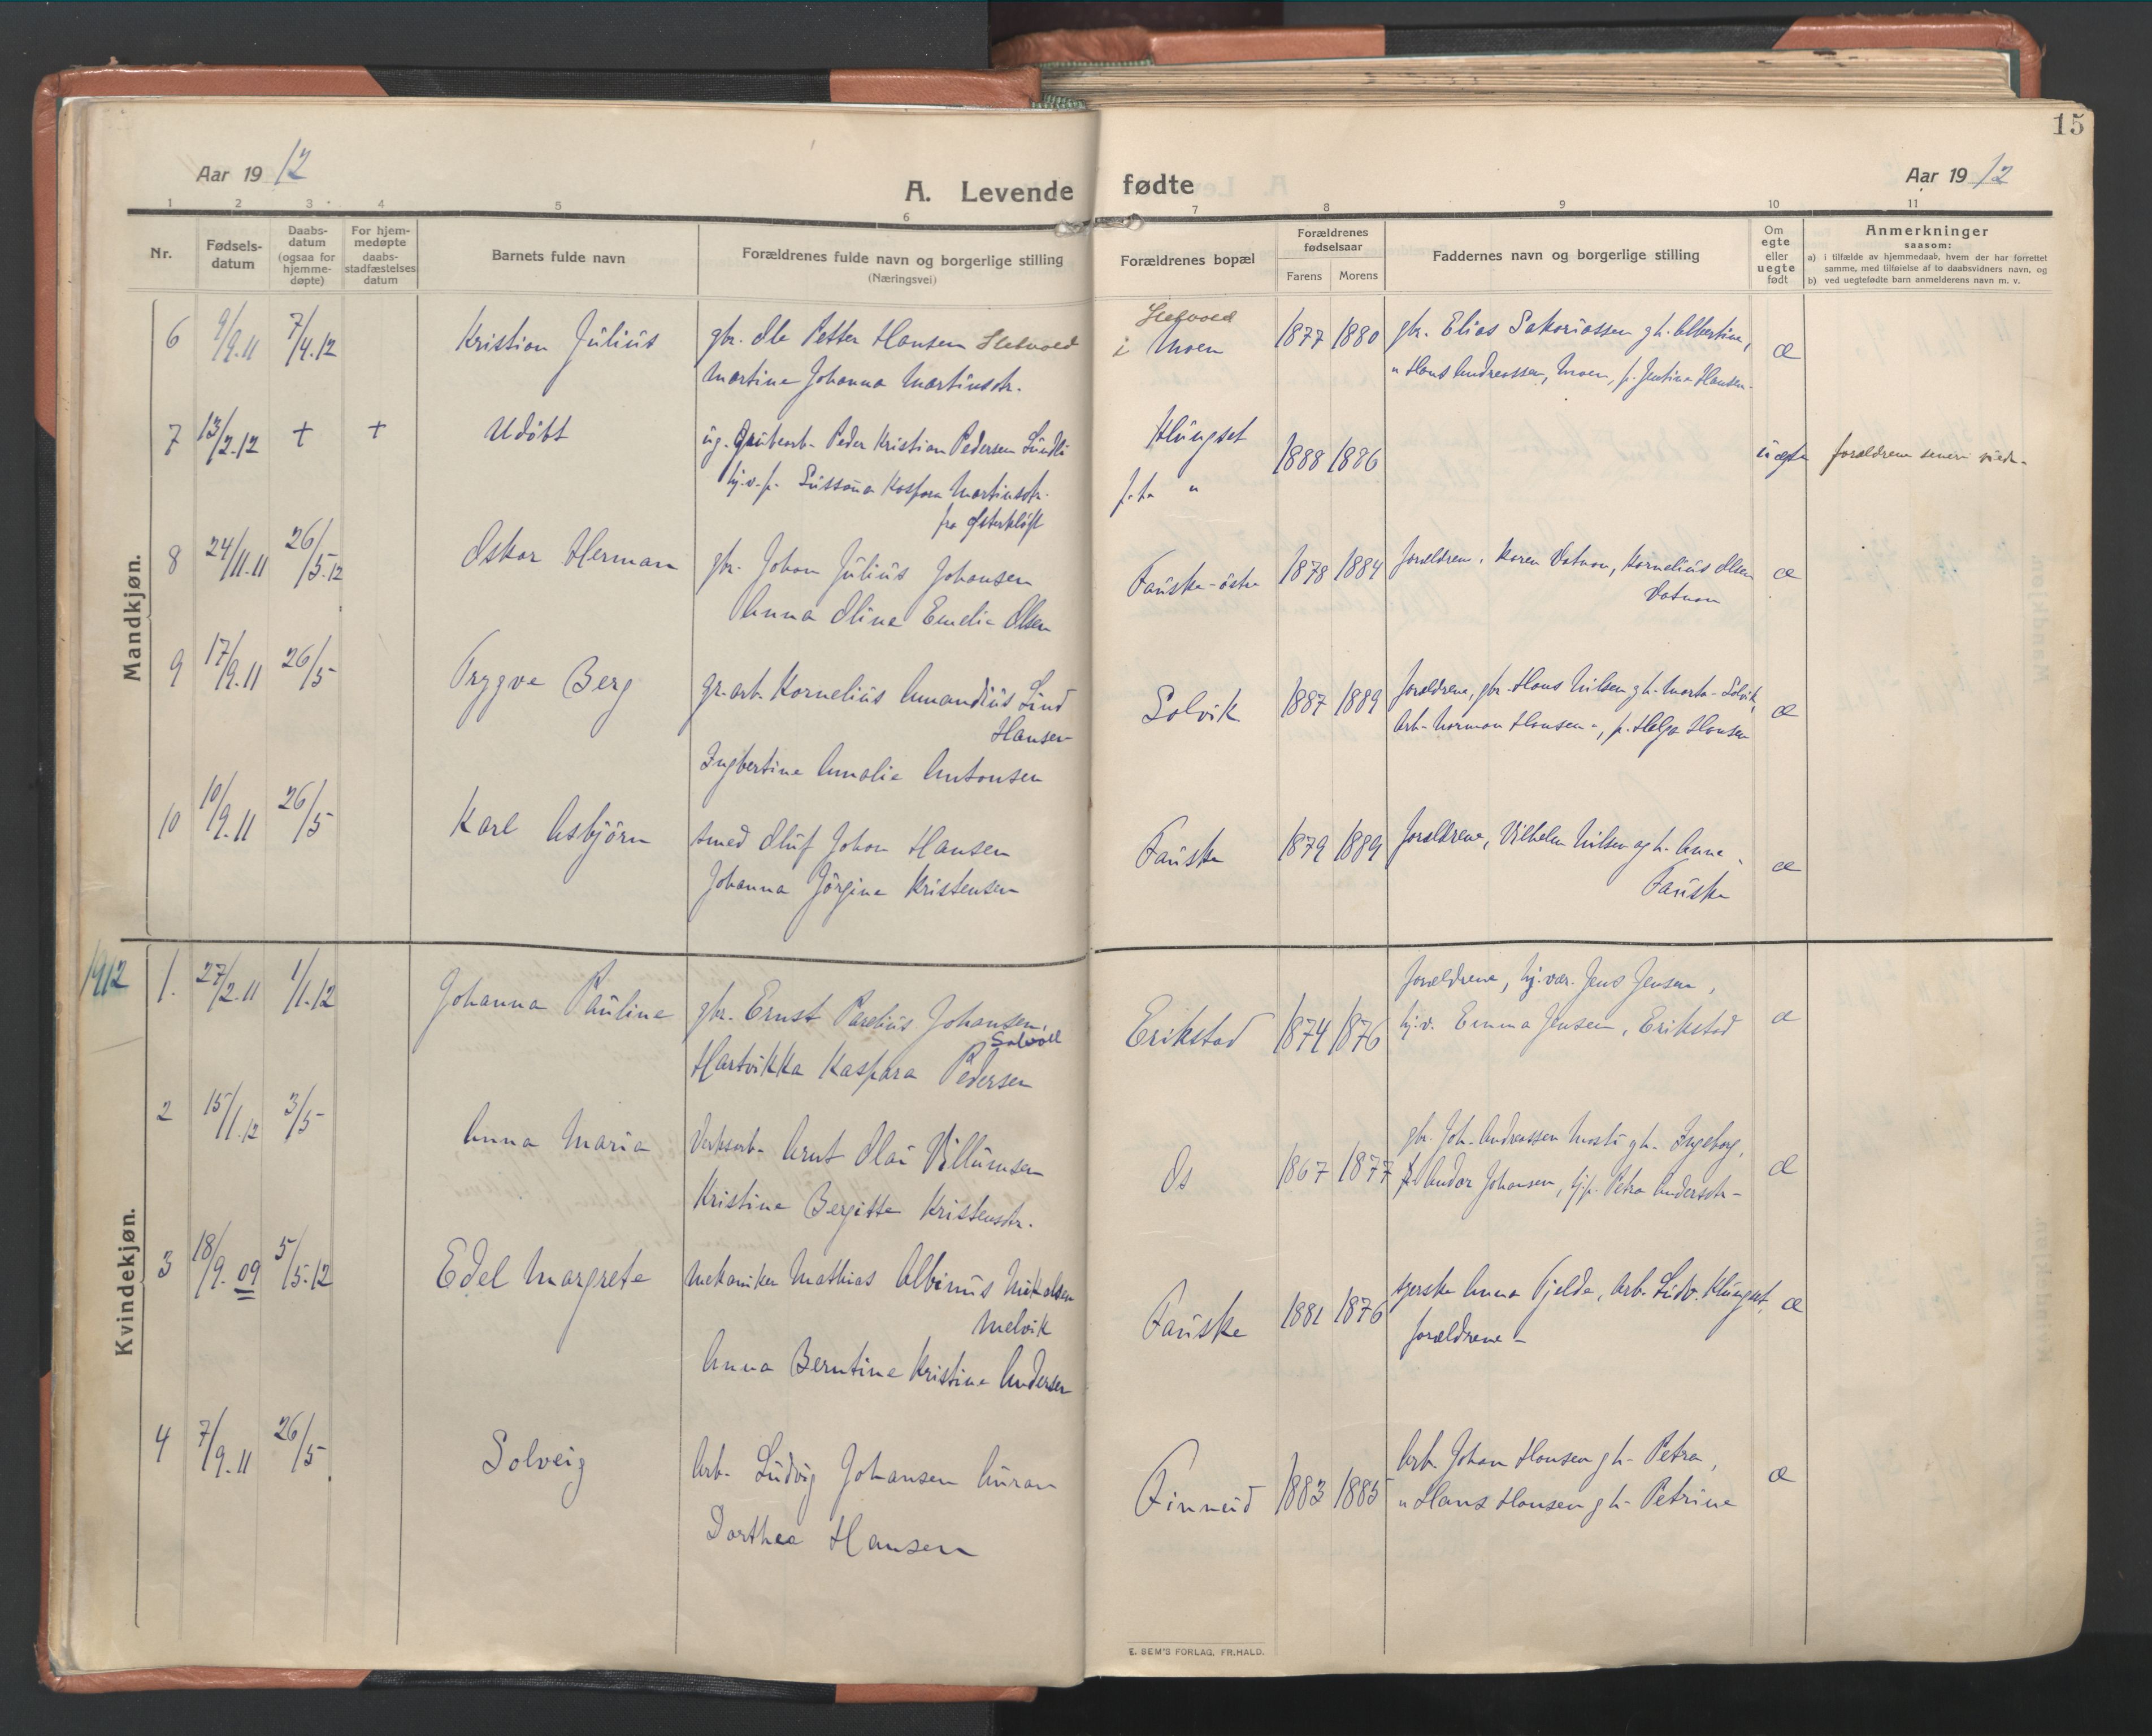 15
Aar 19 12
A. Levende fødte
Aar 19 12
1 2 3 4 5 6 7 8 9 10 11
Nr.
Fødsels-
datum
Daabs-
datum
(ogsaa for
hjemme-
døpte)
For hjem-
medøpte
daabs-
stadfæstelses
datum
Barnets fulde navn
Forældrenes fulde navn og borgerlige stilling
(Næringsvei)
Forældrenes bopæl
Forældrenes
fødselsaar
Farens Morens
Faddernes navn og borgerlige stilling
Om
egte
eller
uegte
født
Anmerkninger
saasom:
a) i tilfælde av hjemmedaab, hvem der har forrettet
samme, med tilføielse af to daabsvidners navn, og
b) ved uegtefødte barn anmelderens navn m. v.
Mandkjøn.
6 9/9.11 7/4.12 Kristian Julius gbr. Ole Petter Hansen Sletvold
Martine Johanna Martinsdtr.
Sletvold
i Moen 1877 1880 gbr. Elias Sakariassen g h. Albertine,
" Hans Andreassen, Moen, p. Jentine Hansen. æ
7 13/2.12 + + Udöbt ug. Grubearb. Peder Kristian Pedersen Lundli
hj.v.p. Sussana Kaspara Martinsdtr.
fra Österkløft
Klungset
p.t. " 1888 1886 uægte forældrene senere viede.
8 24/11.11 26/5.12 Oskar Herman gbr. Johan Julius Johansen
Anna Oline Emelie Olsen
Fauske-östre 1878 1884 forældrene, Karen Vatnan, Kornelius Olsen
Vatnan æ
9 17/9.11 26/5 Trygve Berg gr.arb. Kornelius Amandius Lind
Hansen
Ingbertine Amalie Antonsen
Solvik 1887 1889 forældrene, gbr. Hans Nilsen g h. Marta - Solvik,
Arb. Norman Hansen -, p. Helga Hansen æ
10 10/9.11 26/5 Karl Asbjörn smed Oluf Johan Hansen
Johanna Jörgine Kristensen
Fauske 1879 1889 forældrene, Vilhelm Nilsen og h. Anna
Fauske æ
Kvindekjøn.
1912
1. 27/2.11 1/1.12 Johanna Pauline gbr. Ernst Parelius Johansen,
Solvoll
Hartvikka Kaspara Pedersen
Erikstad 1874 1876 forældrene, hj.vær. Jens Jensen,
hj.v. Emma Jensen, Erikstad æ
2 15/1.12 3/5 Anna Maria Verksarb. Arnt Olai Villumsen
Kristine Bergitte Kristensdtr.
Os 1867 1877 gbr. Joh. Andreassen Mosti g h. Ingeborg,
Andor Johansen, hj.p. Petra Andersdtr - æ
3 18/9.09 5/5.12 Edel Margrete Mekaniker Mathias Albinus Mikalsen
Melvik
Anna Berntine Kristine Andersen
Fauske 1881 1876 syerske Anna Fjelde, Arb. Ludv. Klungset,
forældrene - æ
4 7/9.11 26/5 Solveig Arb. Ludvig Johansen Auran
Dorthea Hansen
Finneid 1883 1885 Arb. Johan Hansen g h. Petra,
" Hans Hansen g h. Petrine æ
E. SEM'S FORLAG, FR.HALD.